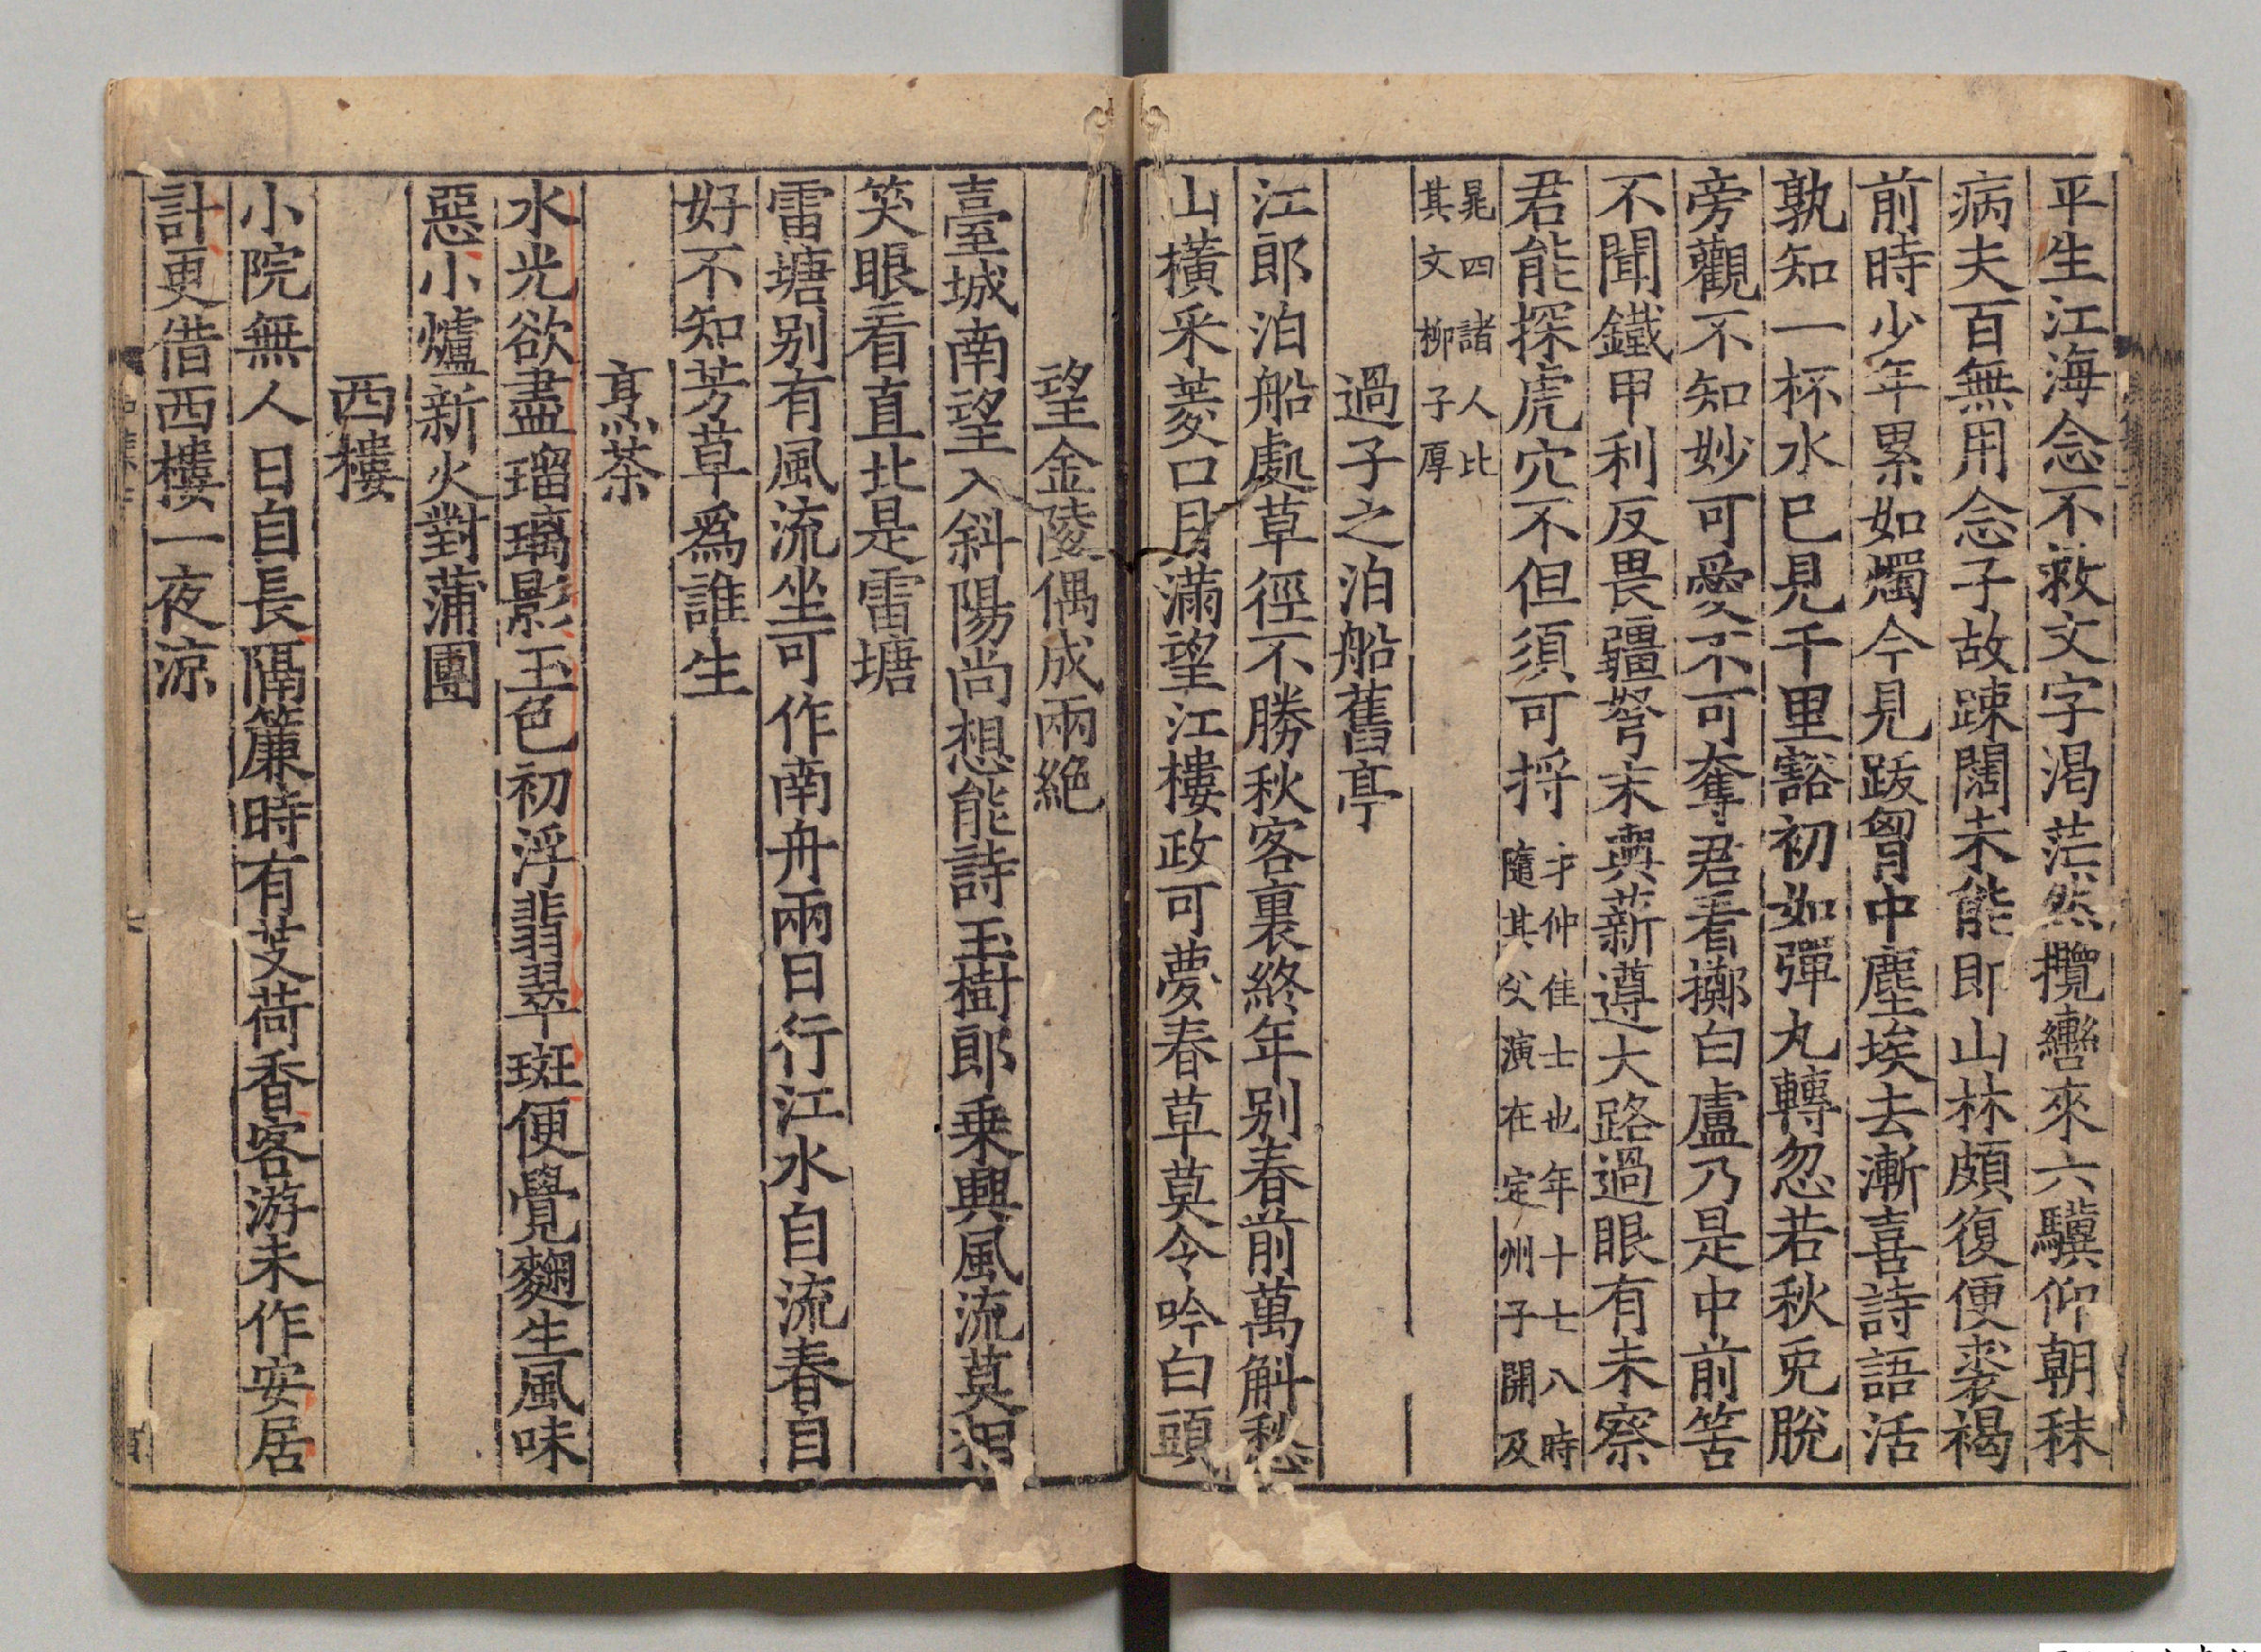 平生江海念不救文字渇茫然攬轡來六驥仰朝秣
病夫百無用念子故踈闊未能即山林頗復便裘褐
前時少年累如燭今見跋胷中塵埃去漸喜詩語活
孰知一杯水已見千里豁初如彈丸轉忽若秋兎脫
旁觀不知妙可愛不可奪君看擲白盧乃是中前筈
不聞鐵甲利反畏疆弩末輿薪遵大路過眼有未察
君能探虎穴不但須可捋
才仲佳士也年十七八時
隨其父演在定州子開及
晁四諸人比
其文柳子厚
過子之泊船舊亭
江郎泊船處草徑不勝秋客裏終年别春前萬斛愁
山橫采菱口月滿望江樓政可夢春草莫令吟白頭
望金陵偶成兩絶
臺城南望入斜陽尚想能詩玉樹郎乗興風流莫相
笑眼看直北是雷塘
雷塘别有風流坐可作南舟兩日行江水自流春自
好不知芳草爲誰生
烹茶
水光欲盡瑠璃影玉色初浮翡翠斑便覺麴生風味
惡小爐新火對蒲團
西樓
小院無人日自長隔簾時有芰荷香客游未作安居
計更借西樓一夜涼